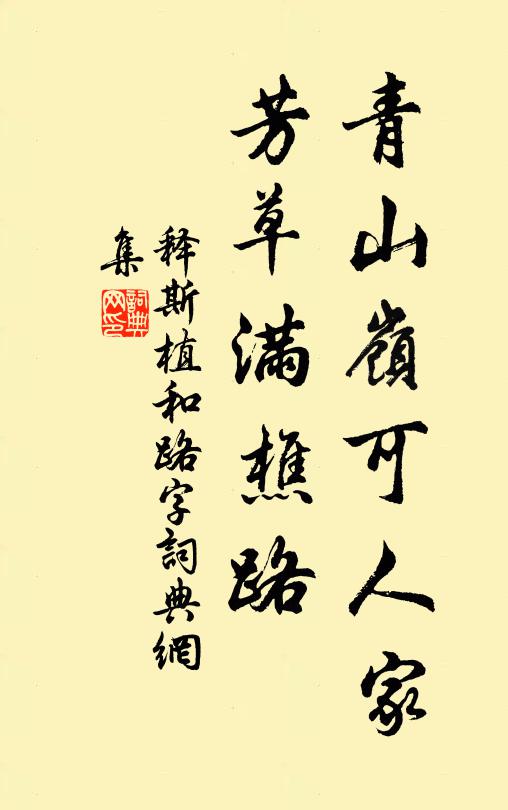 青山嶺可人家
芳草滿樵路
释斯植和路字詞典網
集
詞典
网印